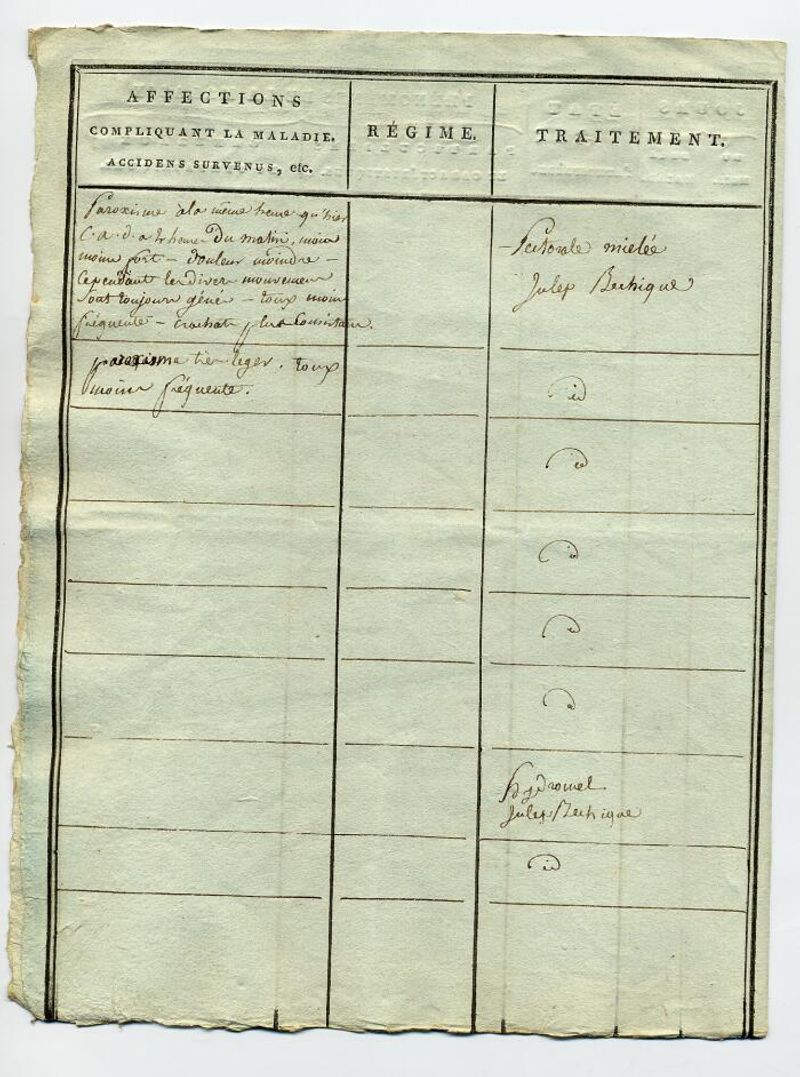 AFFECTIONS
COMPLIQUANT LA MALADIE.
ACCIDENS SURVENUS, etc.
RÉGIME.
TRAITEMENT.
Paroxisme à la même heure qu'hier
c.a.d. a heure Du matin, moin
moin fort – Douleur moindre –
Cependant les diver mouvemen
sont toujour géné – toux moin
fréquente – crachats plus consistan.
– Pectorale mielée
Julep Bechique
paroxisme tres leger. toux
moin fréquente.
id
id
id
id
id
Hydromel
Julep Bechique
id